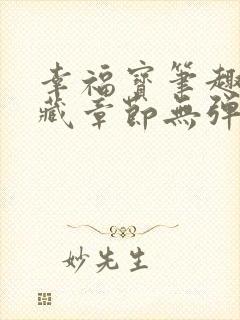 幸福寶筆趣
藏章節無彈
妙先生